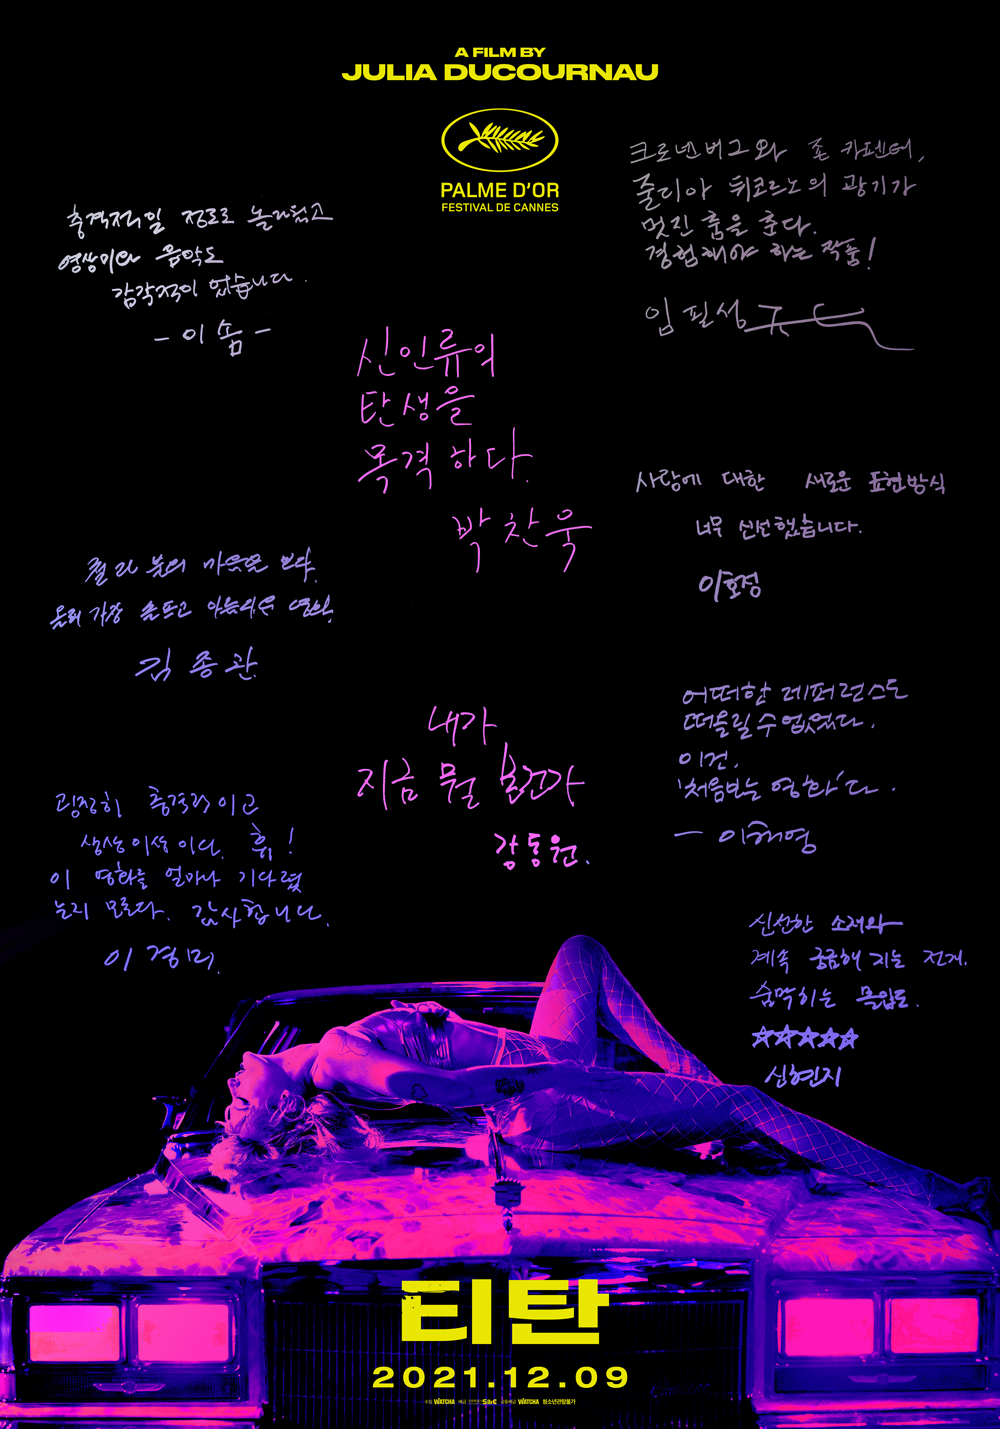 A FILM BY
JULIA DUCOURNAU
PALME D'OR
FESTIVAL DE CANNES
크로넨버그와 존 카펜터,
줄리아 뒤코르노의 광기가
멋진 춤을 춘다.
경험해야 하는 작품!
임필성
충격적일 정도로 놀라웠고
영상미와 음악도
감각적이었습니다.
- 이솜 -
신인류의
탄생을
목격하다.
박찬욱
사랑에 대한 새로운 표현방식
너무 신선했습니다.
이호정
마음을 보다.
올해 가장 아름다운 영화.
김종관
어떠한 레퍼런스도
떠올릴 수 없었다.
이건.
'처음보는 영화'다.
- 이해영
내가
지금 뭘 본건가
강동원.
굉장히 충격적이고
생생이상이다. 휴!
이 영화를 얼마나 기다렸
는지 모르다. 감사합니다.
이경미.
신선한 소재와
계속 궁금해지는 전개.
숨막히는 몰입도.
☆☆☆☆☆
신현지
티탄
2021.12.09
수입 WATCHA 배급 S&C 공동배급 WATCHA 청소년관람불가